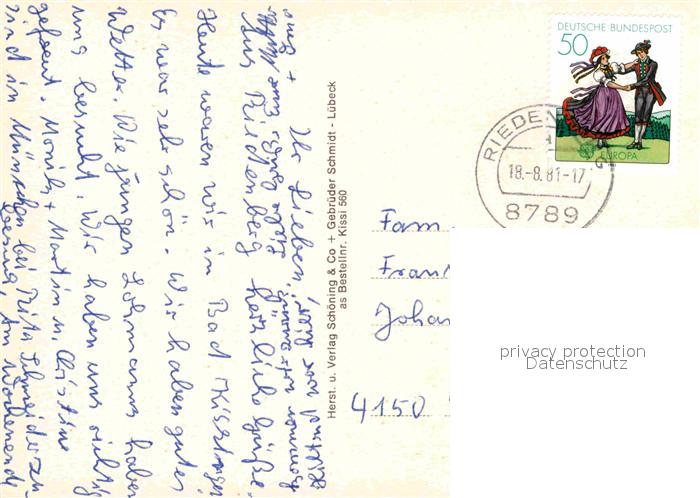 Ihr Lieben,
Aus Riedenberg herzliche Grüße.
Heute waren wir in Bad Kissingen
Es war sehr schön. Wir haben gutes
Wetter. Die jungen Lohmanns haben
uns besucht. Wir haben uns richtig
gefreut. Monika + Martin u. Christine
sind in München bei Rita Schneider zu
Am Wochenende
Herst. u. Verlag Schöning & Co + Gebrüder Schmidt - Lübeck
as Bestellnr. Kissi 560
DEUTSCHE BUNDESPOST
50
EUROPA
RIEDEN
18.-8.81-17
8789
Fam
Fran
Joha
4150
privacy protection
Datenschutz